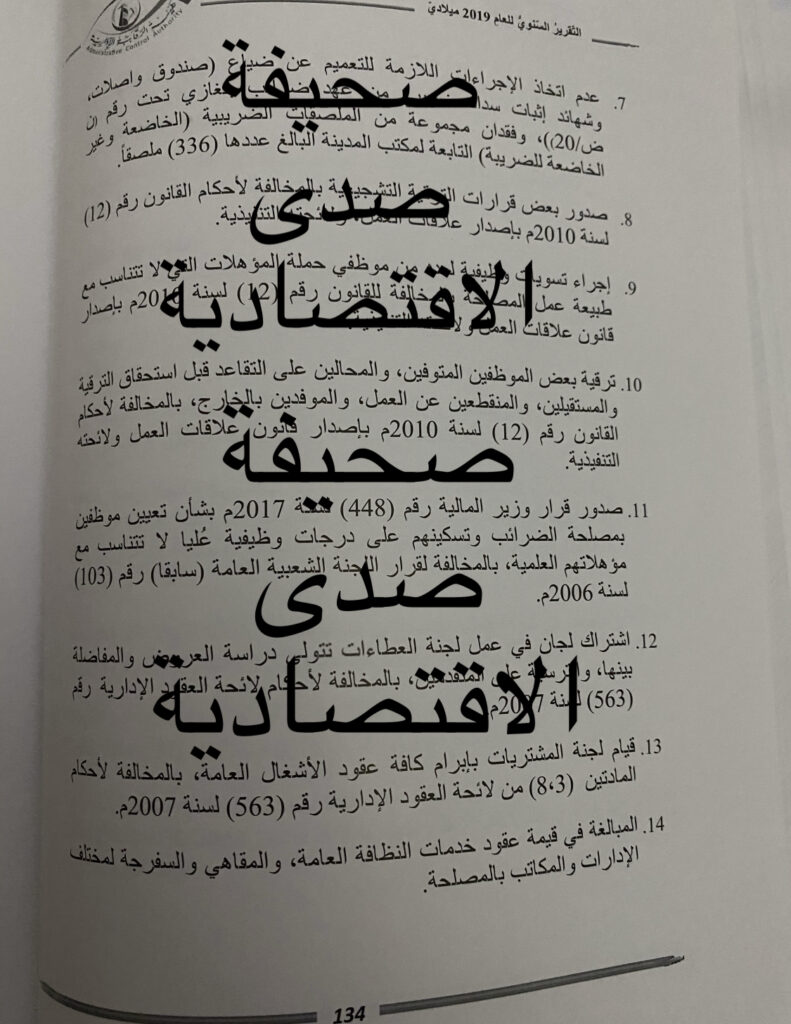 التقرير السنوي للعام 2019 ميلادي
Administrative Control Authority
7. عدم اتخاذ الإجراءات اللازمة للتعميم عن ضياع (صندوق واصلات،
وشهائد إثبات سداد من عهد بنغازي تحت رقم (ن
ض/20))، وفقدان مجموعة من الملصقات الضريبية (الخاضعة وغير
الخاضعة للضريبة) التابعة لمكتب المدينة البالغ عددها (336) ملصقاً.
8. صدور بعض قرارات الترقية التشجيعية بالمخالفة لأحكام القانون رقم (12)
لسنة 2010م بإصدار علاقات العمل، ولائحته التنفيذية.
9. إجراء تسويات وظيفية لعدد من موظفي حملة المؤهلات التي لا تتناسب مع
طبيعة عمل المصلحة بالمخالفة للقانون رقم (12) لسنة 2010م بإصدار
قانون علاقات العمل ولائحته التنفيذية.
10. ترقية بعض الموظفين المتوفين، والمحالين على التقاعد قبل استحقاق الترقية
والمستقيلين، والمنقطعين عن العمل، والموفدين بالخارج، بالمخالفة لأحكام
القانون رقم (12) لسنة 2010م بإصدار قانون علاقات العمل ولائحته
التنفيذية.
11. صدور قرار وزير المالية رقم (448) لسنة 2017م بشأن تعيين موظفين
بمصلحة الضرائب وتسكينهم على درجات وظيفية عُليا لا تتناسب مع
مؤهلاتهم العلمية، بالمخالفة لقرار اللجنة الشعبية العامة (سابقا) رقم (103)
لسنة 2006م.
12. اشتراك لجان في عمل لجنة العطاءات تتولى دراسة العروض والمفاضلة
بينها، والترسية على المتقدمين، بالمخالفة لأحكام لائحة العقود الإدارية رقم
(563) لسنة 2007م.
13. قيام لجنة المشتريات بإبرام كافة عقود الأشغال العامة، بالمخالفة لأحكام
المادتين (8،3) من لائحة العقود الإدارية رقم (563) لسنة 2007م.
14. المبالغة في قيمة عقود خدمات النظافة العامة، والمقاهي والسفرجة لمختلف
الإدارات والمكاتب بالمصلحة.
134
صحيفة
صدى
الاقتصادية
صحيفة
صدى
الاقتصادية